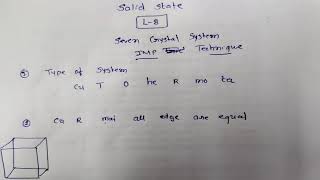 Solid State
L-8
Seven Crystal System
IMP Technique
① Type of System
Cu T O he R mo
② Cu R mai all edge are equal